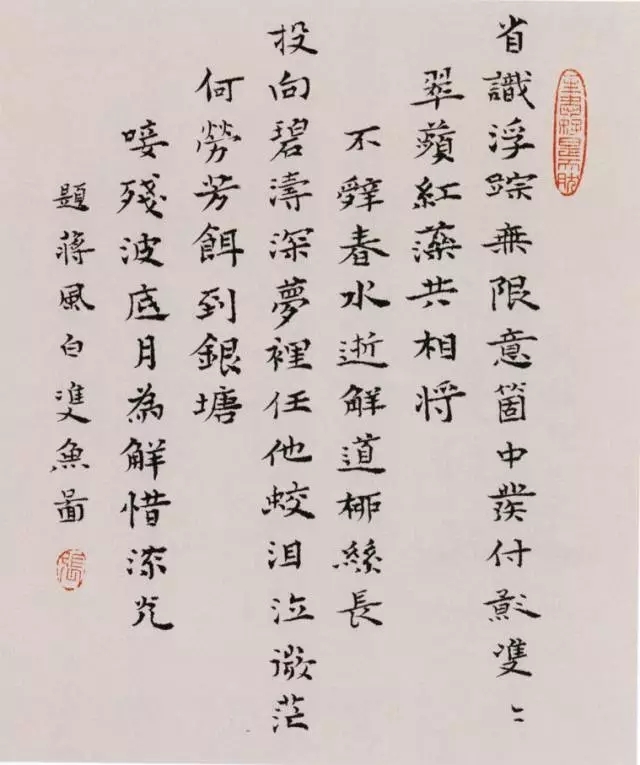 省識浮踪無限意箇中發付影雙〻
翠蘋紅藻共相將
不辤春水逝解道柳絲長
投向碧濤深夢裡任他蛟泪泣微茫
何勞芳餌到銀塘
唼殘波底月為解惜流光
題蔣風白雙魚畫
張